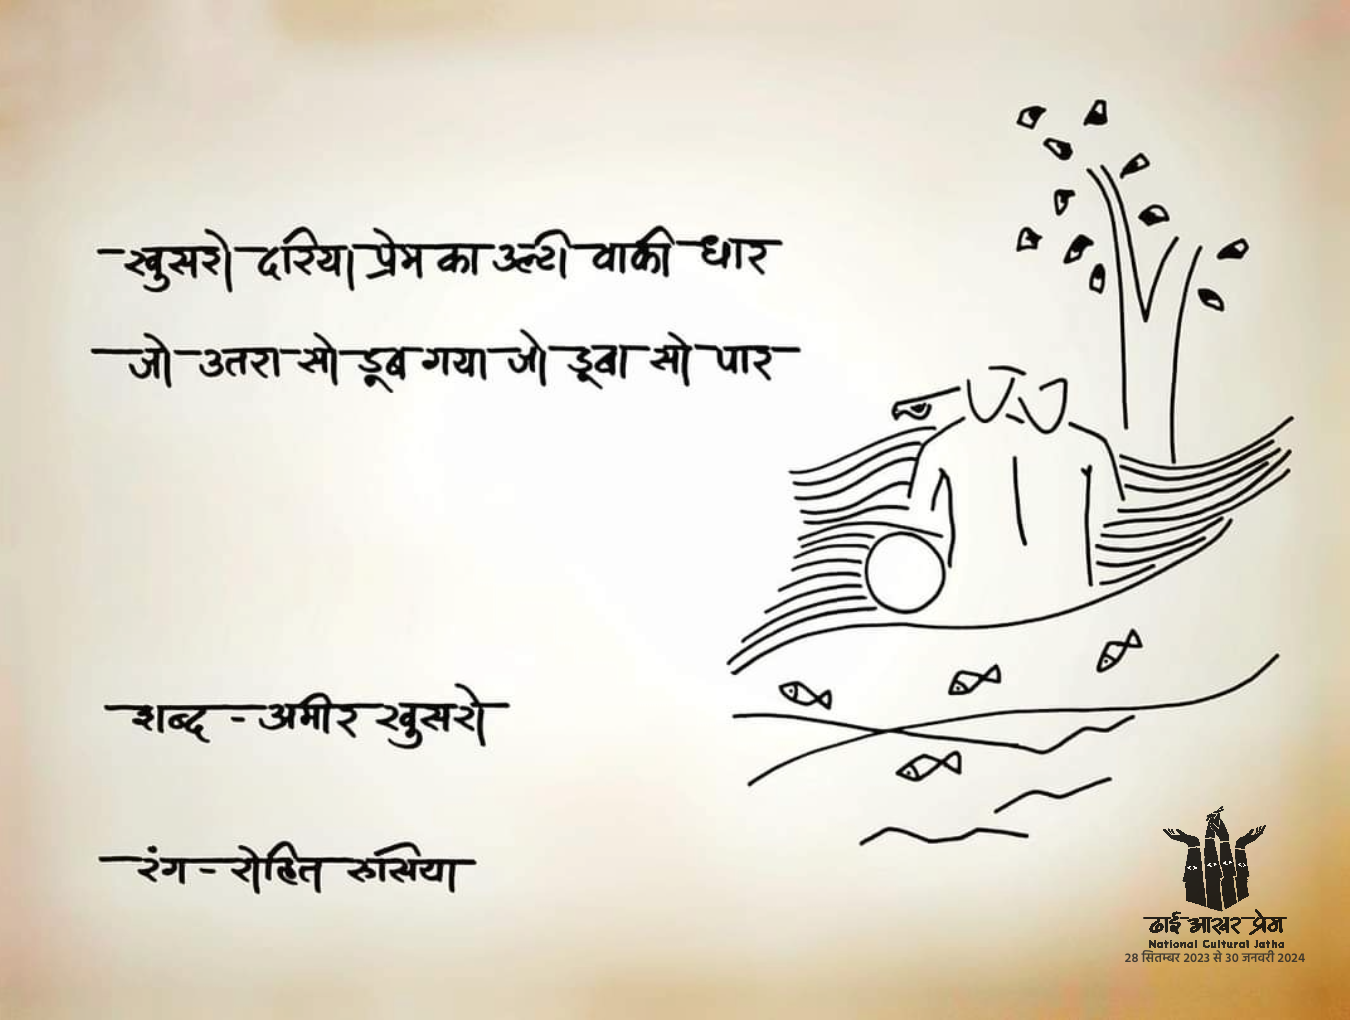 खुसरो दरिया प्रेम का उल्टी वाकी धार
जो उतरा सो डूब गया जो डूबा सो पार
शब्द - अमीर खुसरो
रंग - रोहित रुसिया
ढाई आखर प्रेम
National Cultural Jatha
28 सितम्बर 2023 से 30 जनवरी 2024